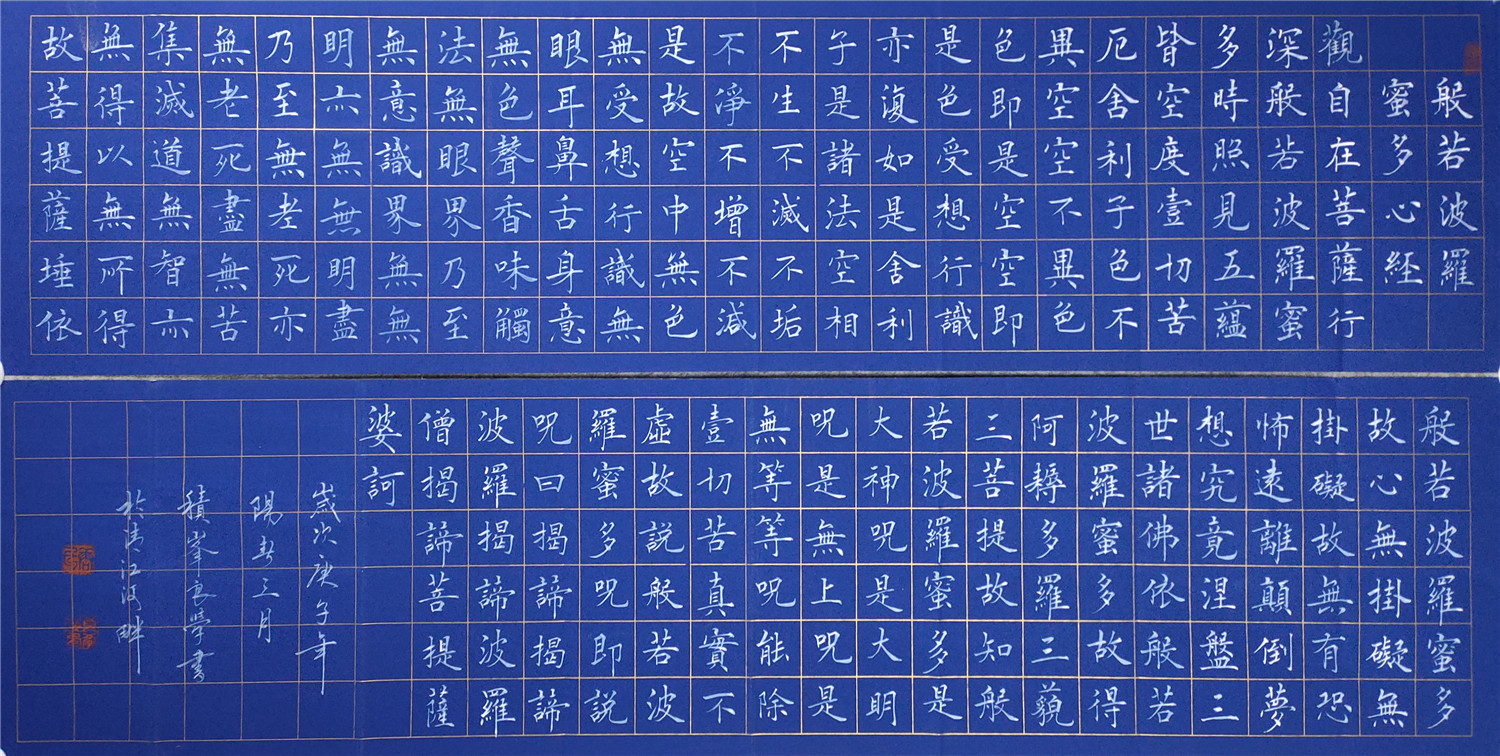 般若波羅
蜜多心経
觀自在菩薩行
深般若波羅蜜
多時照見五蘊
皆空度壹切苦
厄舍利子色不
異空空不異色
色即是空空即
是色受想行識
亦復如是舍利
子是諸法空相
不生不滅不垢
不淨不增不減
是故空中無色
無受想行識無
眼耳鼻舌身意
無色聲香味觸
法無眼界乃至
無意識界無無
明亦無無明盡
乃至無老死亦
無老死盡無苦
集滅道無智亦
無得以無所得
故菩提薩埵依
般若波羅蜜多
故心無掛礙無
掛礙故無有恐
怖遠離顛倒夢
想究竟涅盤三
世諸佛依般若
波羅蜜多故得
阿耨多羅三藐
三菩提故知般
若波羅蜜多是
大神呪是大明
呪是無上呪是
無等等呪能除
壹切苦真實不
虛故說般若波
羅蜜多呪即說
呪曰揭諦揭諦
波羅揭諦波羅
僧揭諦菩提薩
婆訶
歲次庚子年
陽春三月
積峯良學書
於清江河畔